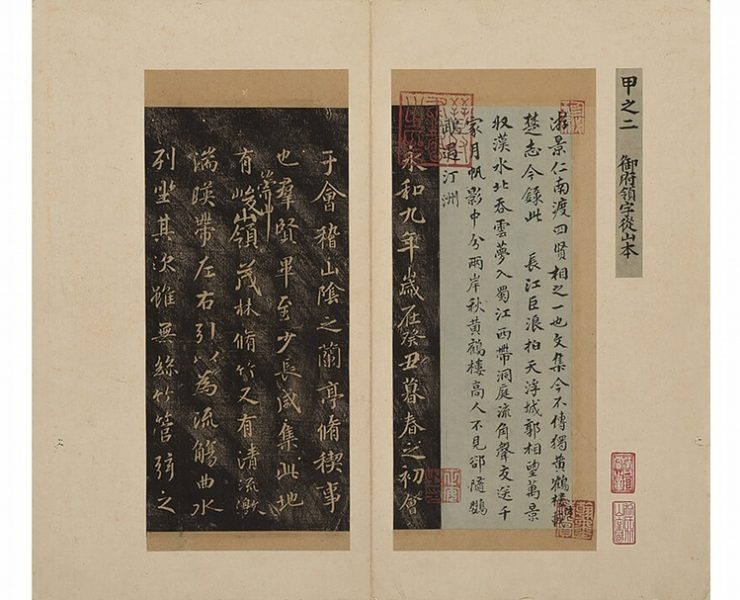 甲之二　御府領字從山本
游景仁南渡四賢相之一也文集今不傳獨黃鶴樓詩載
楚志今錄此　長江巨浪拍天浮城郭相望萬景
收漢水北吞雲夢入蜀江西帶洞庭流角聲交送千
家月帆影中分兩岸秋黃鶴樓高人不見卻隨鸚
鵡過汀洲
永和九年歲在癸丑暮春之初會
于會稽山陰之蘭亭脩稧事
也羣賢畢至少長咸集此地
有崇山峻嶺茂林脩竹又有清流激
湍暎帶左右引以為流觴曲水
列坐其次雖無絲竹管弦之